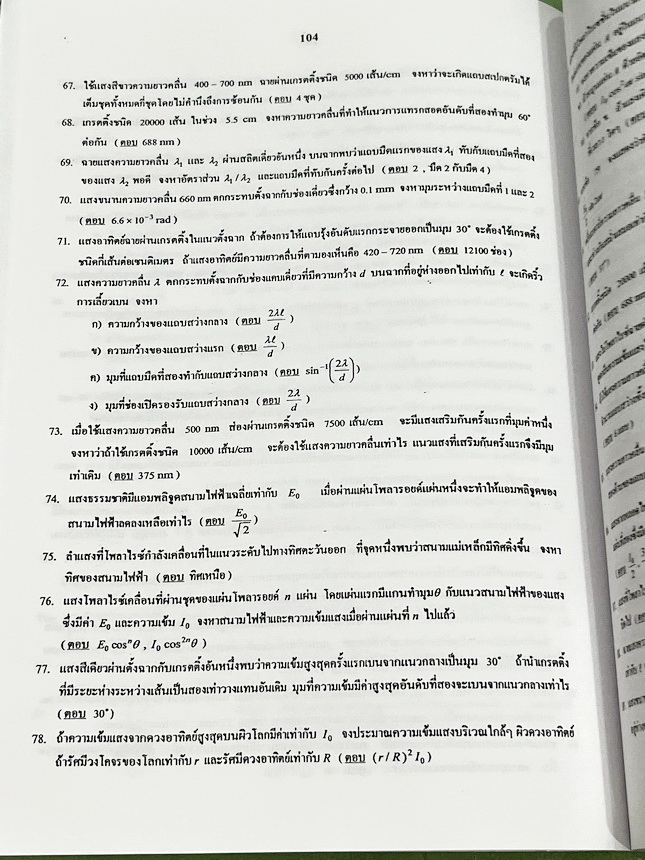 104
67. ใช้แสงสีขาวความยาวคลื่น 400 – 700 nm ฉายผ่านเกรตติ้งชนิด 5000 เส้น/cm จงหาว่าจะเกิดแถบสเปกตรัมได้
เต็มชุดทั้งหมดกี่ชุดโดยไม่คำนึงถึงการซ้อนกัน (ตอบ 4 ชุด)
68. เกรตติ้งชนิด 20000 เส้น ในช่วง 5.5 cm จงหาความยาวคลื่นที่ทำให้แนวการแทรกสอดอันดับที่สองทำมุม 60°
ต่อกัน (ตอบ 688 nm)
69. ฉายแสงความยาวคลื่น λ₁ และ λ₂ ผ่านสลิตเดี่ยวอันหนึ่ง บนฉากพบว่าแถบมืดแรกของแสง λ₁ ทับกับแถบมืดที่สอง
ของแสง λ₂ พอดี จงหาอัตราส่วน λ₁ / λ₂ และแถบมืดที่ทับกันครั้งต่อไป (ตอบ 2 , มืด 2 กับมืด 4)
70. แสงขนานความยาวคลื่น 660 nm ตกกระทบตั้งฉากกับช่องเดี่ยวซึ่งกว้าง 0.1 mm จงหามุมระหว่างแถบมืดที่ 1 และ 2
(ตอบ 6.6 × 10⁻³ rad)
71. แสงอาทิตย์ฉายผ่านเกรตติ้งในแนวตั้งฉาก ถ้าต้องการให้แถบรุ้งอันดับแรกกระจายออกเป็นมุม 30° จะต้องใช้เกรตติ้ง
ชนิดกี่เส้นต่อเซนติเมตร ถ้าแสงอาทิตย์มีความยาวคลื่นที่ตามองเห็นคือ 420 – 720 nm (ตอบ 12100 ช่อง)
72. แสงความยาวคลื่น λ ตกกระทบตั้งฉากกับช่องแคบเดี่ยวที่มีความกว้าง d บนฉากที่อยู่ห่างออกไปเท่ากับ ℓ จะเกิดริ้ว
การเลี้ยวเบน จงหา
ก) ความกว้างของแถบสว่างกลาง (ตอบ 2λℓ/d)
ข) ความกว้างของแถบสว่างแรก (ตอบ λℓ/d)
ค) มุมที่แถบมืดที่สองทำกับแถบสว่างกลาง (ตอบ sin⁻¹(2λ/d))
ง) มุมที่ช่องเปิดรองรับแถบสว่างกลาง (ตอบ 2λ/d)
73. เมื่อใช้แสงความยาวคลื่น 500 nm ส่องผ่านเกรตติ้งชนิด 7500 เส้น/cm จะมีแสงเสริมกันครั้งแรกที่มุมค่าหนึ่ง
จงหาว่าถ้าใช้เกรตติ้งชนิด 10000 เส้น/cm จะต้องใช้แสงความยาวคลื่นเท่าไร แนวแสงที่เสริมกันครั้งแรกจึงมีมุม
เท่าเดิม (ตอบ 375 nm)
74. แสงธรรมชาติมีแอมพลิจูดสนามไฟฟ้าเฉลี่ยเท่ากับ E₀ เมื่อผ่านแผ่นโพลารอยด์แผ่นหนึ่งจะทำให้แอมพลิจูดของ
สนามไฟฟ้าลดลงเหลือเท่าไร (ตอบ E₀/√2)
75. ลำแสงที่โพลาไรซ์กำลังเคลื่อนที่ในแนวระดับไปทางทิศตะวันออก ที่จุดหนึ่งพบว่าสนามแม่เหล็กมีทิศดิ่งขึ้น จงหา
ทิศของสนามไฟฟ้า (ตอบ ทิศเหนือ)
76. แสงโพลาไรซ์เคลื่อนที่ผ่านชุดของแผ่นโพลารอยด์ n แผ่น โดยแผ่นแรกมีแกนทำมุม θ กับแนวสนามไฟฟ้าของแสง
ซึ่งมีค่า E₀ และความเข้ม I₀ จงหาสนามไฟฟ้าและความเข้มแสงเมื่อผ่านแผ่นที่ n ไปแล้ว
(ตอบ E₀ cosⁿθ , I₀ cos²ⁿθ)
77. แสงสีเดียวผ่านตั้งฉากกับเกรตติ้งอันหนึ่งพบว่าความเข้มสูงสุดครั้งแรกเบนจากแนวกลางเป็นมุม 30° ถ้านำเกรตติ้ง
ที่มีระยะห่างระหว่างเส้นเป็นสองเท่าวางแทนอันเดิม มุมที่ความเข้มมีค่าสูงสุดอันดับที่สองจะเบนจากแนวกลางเท่าไร
(ตอบ 30°)
78. ถ้าความเข้มแสงจากดวงอาทิตย์สูงสุดบนผิวโลกมีค่าเท่ากับ I₀ จงประมาณความเข้มแสงบริเวณใกล้ๆ ผิวดวงอาทิตย์
ถ้ารัศมีวงโคจรของโลกเท่ากับ r และรัศมีดวงอาทิตย์เท่ากับ R (ตอบ (r / R)² I₀)